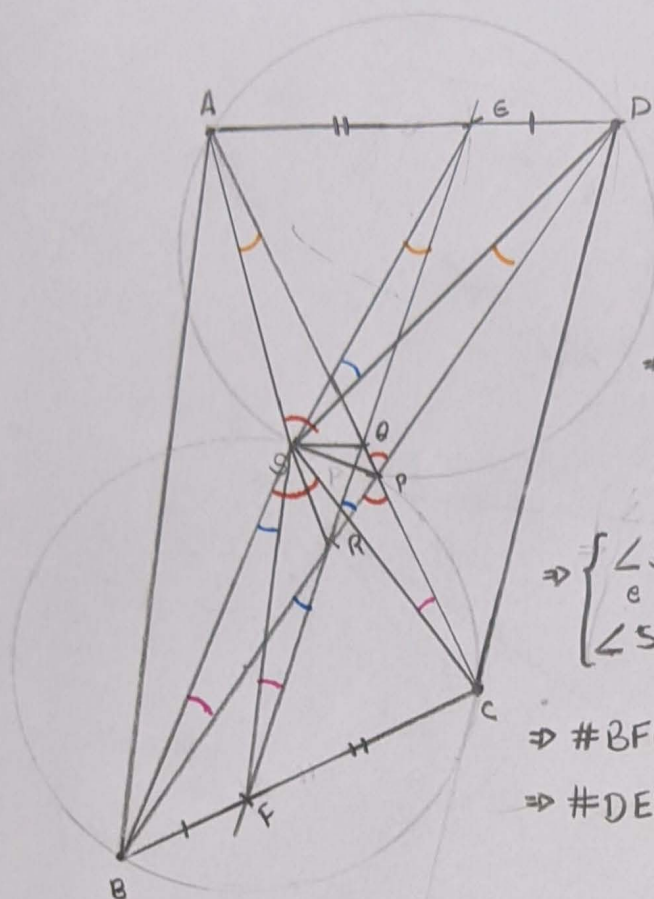 A
E
D
S
Q
P
R
C
F
B
⇒
⇒ { ∠
e
∠S
⇒ #BF
⇒ #DE